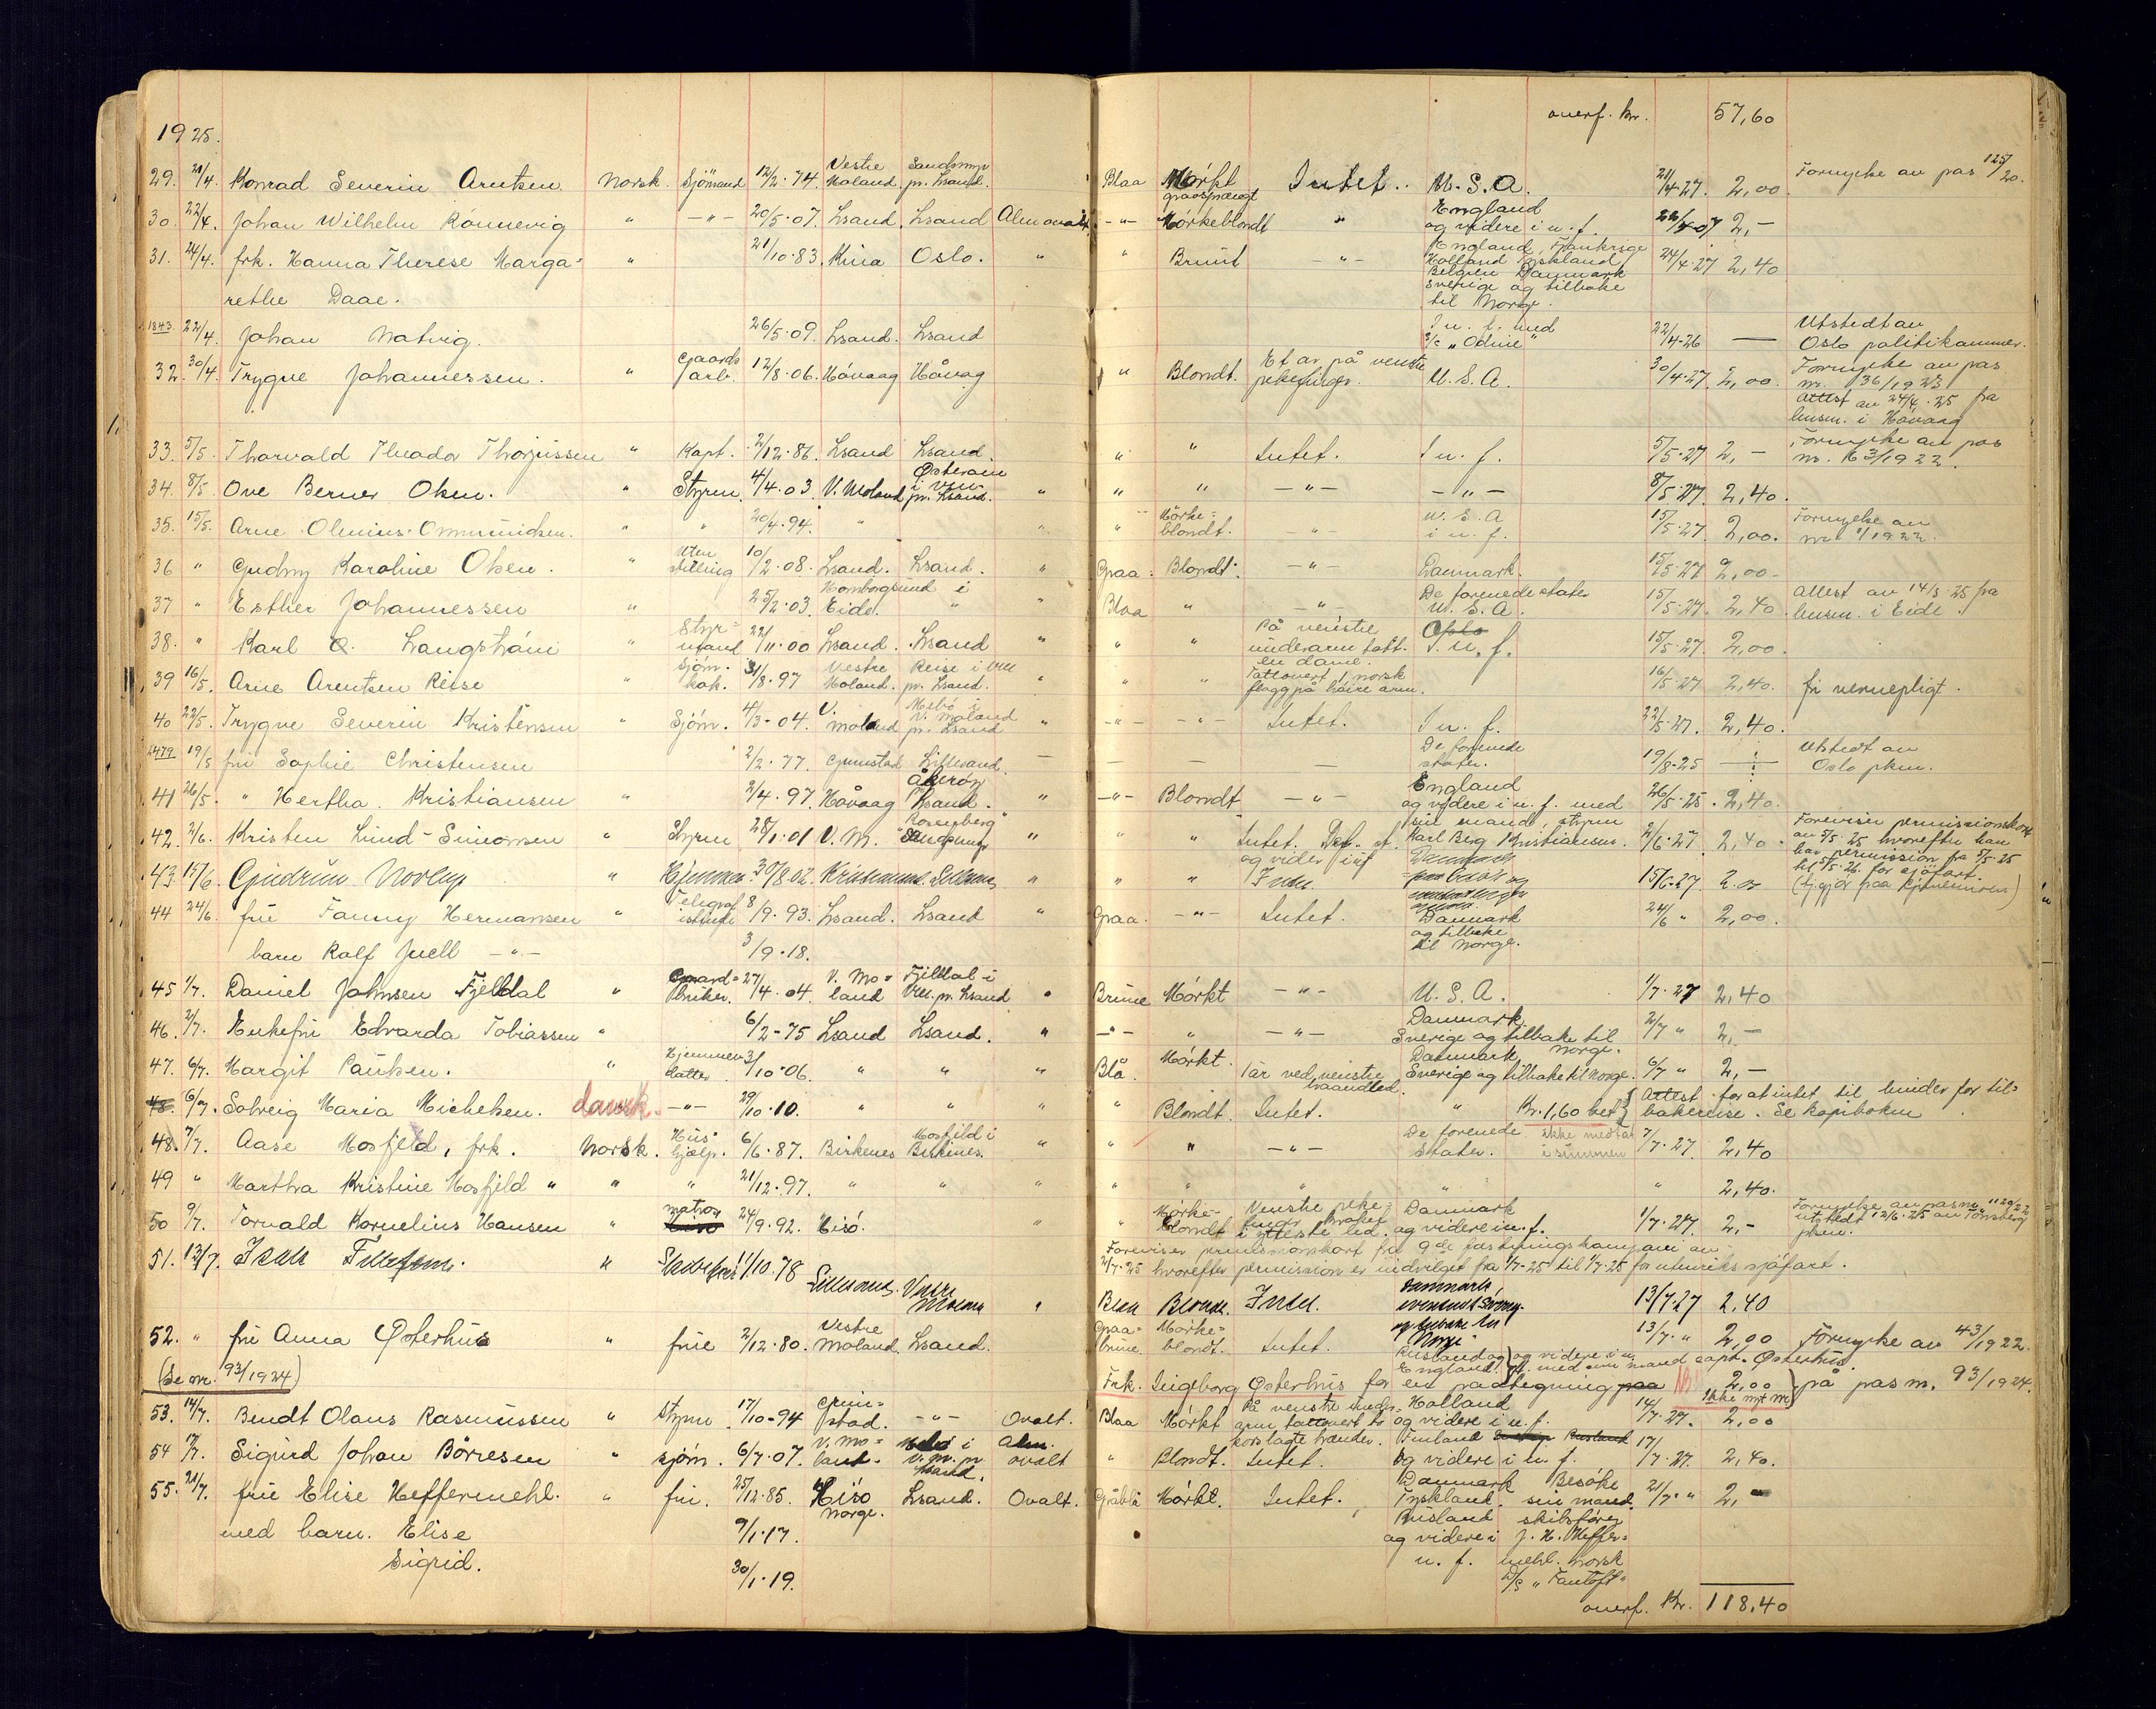 1925. overf. kr. 57,60
29. 21/4. Konrad Severin Arntsen Norsk. Sjömand 12/2.74. Vestre Moland. Sandsmyr pr. Lsand. Blaa Mörkt graasprengt Intet. U.S.A. 21/4-27. 2,00. Fornyelse av pas 125/20.
30. 22/4. Johan Wilhelm Rönnevig " —"— 20/5.07. Lsand. Lsand Alm ovalt. —"— Mörkeblondt " England og videre i u. f. 22/4-07 2,—
31. 24/4. frk. Hanna Therese Marga- " 21/10.83. Kina Oslo. " " Brunt —"— England, Frankrige Holland Tyskland, Belgien Danmark Sverige og tilbake til Norge. 24/4.27 2,40
rethe Daae.
1843. 22/4 Johan Natvig. 26/5.09. Lsand. Lsand I u. f. med S/S "Odin" 22/4-26 — Utstedt av Oslo politikammer.
32. 30/4. Trygve Johannessen. " Gaards arb. 12/8.06. Hövaag Håvag " Blondt. Et ar på venstre pekefinger. U.S.A. 30/4.27 2,00. Fornyelse av pas nr. 36/1923 Attest av 24/4.25 fra lensm. i Hövaag
33. 5/5. Thorvald Theodor Thorjussen " Kapt. 2/12.86. Lsand Lsand. " " Intet. I u. f. 5/5-27 2,— Fornyelse av pas nr. 63/1922.
34. 8/5. Ove Berner Olsen. " Styrm. 4/4.03. V. Moland pr. Lsand. " " " —"— —"— 8/5.27. 2,40.
35. 15/5. Arne Olenius Ommundsen. " " 20/4.94. " " " Mörke= blondt. —"— U.S.A i u. f. 15/5-27. 2,00. Fornyelse av nr. 1/1922.
36 " Gudny Karoline Olsen. " Uten stilling 10/2.08. Lsand. Lsand. " Graa. Blondt. —"— Danmark. 15/5.27 2,00-
37 " Esther Johannessen " 25/2.03. Homborgsund i Eide. " " Blaa " —"— De forenede stater U.S.A. 15/5-27. 2,40. Attest av 14/5-25 fra lensm. i Eide.
38. " Karl O. Langstrám " Styr= mand 22/11.00 Lsand. Lsand " " " På venstre underarm tatt. en dame. I u. f. 15/5-27. 2,00.
39 16/5. Arne Arentsen Reise " Sjöm. kok. 31/8.97 Vestre Moland. Reise i V.M. pr. Lsand. " " " Tattovert 1 norsk flagg på höire arm. 16/5-27 2,40. fri vernepligt.
40 22/5. Trygve Severin Kristensen " Sjöm. 4/3-04. V. Moland V. Moland pr. Lsand " —"— —"— Intet. I u. f. 22/5.27. 2,40.
2479 19/5 fru Sophie Christensen 2/2.77. Grimstad Lillesand. — — — — De forenede stater. 19/8-25 — Utstedt av Oslo pkm.
41 26/5. " Hertha. Kristiansen " 2/4.97. Håvaag Åkeröy Lsand. " —"— Blondt —"— England og videre i u. f. med sin mand, styrm Karl Berg Kristiansen. 26/5-25. 2,40.
42. 2/6. Kristen Lind-Simonsen " Styrm 28/1.01 V. M. Rosenberg " " " Intet. og videre i uf 2/6.27. 2,40. Foreviser permissionskort av 5/5.25 hvorefter han har permission fra 5/5-25 til 5/5-26. for sjöfart.
43. 15/6. Gudrun Norlup " Hjemme 30/8.02. " " Intet. 15/6-27 2.00
44 24/6. fru Fanny Hermansen " Telegraf istinde 8/9.93. Lsand. Lsand " Graa. —"— Intet. Danmark og tilbake til Norge. 24/6 " 2,00.
barn Ralf Juell —"— 3/9.18.
45 1/7. Daniel Johnsen Fjeldal " Gaard= bruker. 27/4.04. V. Mo= land Fjeldal i V.M. pr. Lsand " Brune Mörkt —"— U.S.A. 1/7.27 2,40
46. 2/7. Enkefru Edvarda Tobiassen " 6/2-75 Lsand Lsand. " —"— " —"— Danmark Sverige og tilbake til Norge. 2/7 " 2,—
47. 6/7. Margit Paulsen. " Hjemmev. datter 31/10-06. " " " Blå. Mörkt. 1 ar ved venstre haandled. Danmark Sverige og tilbake til Norge. 6/7 " 2,—
48. 6/7. Solveig Maria Michelsen. dansk. —"— 29/10.10. " " " " Blondt. Intet. " Kr. 1,60 bet. Attest for at intet til hinder for til= bakereise. Se kopiboken
48. 7/7. Aase Mosfjeld, frk. Norsk. Hus= hjælp. 6/6.87. Birkenes Mosfjeld i Birkenes. " " " —"— De forenede Stater. ikke medtat i summen 7/7-27. 2,40
49 " Martha Kristine Mosfjeld " " " 21/12.97. " " " " " " " " 2,40.
50 9/7. Torvald Kornelius Hansen " matros 24/9.92. Hisö. " " Mörke- blondt Venstre peke= finger kroket i ytterste led. Danmark og videre i u. f. 1/7-27. 2,- Fornyelse av pas nr. 1129/22 utstedt 12/6-25 av Tönsberg pkm.
Foreviser permissionskort fra 9de festningskompani av 2/7-25 hvorefter permission er indvilget fra 1/7-25 til 1/7-28 for utenriks sjöfart.
51. 13/7. " 11/10.78 Lillesand. Vestre Moland " Blaa Blonde. Intet. Danmark, eventuelt Sverig. og tilbake til Norge 13/7-27 2,40
52. " fru Anna Østerhus " frue 2/12.80. Vestre Moland. Lsand. Graa= brune. Mörke= blondt. Intet. Rusland og England og videre i u. f. med sin mand capt. Østerhus. 13/7. " 2,00 Fornyelse av 43/1922.
(Se nr. 93/1924) Frk. Ingeborg Østerhus for en paategning paa 2,00 på pas nr. 93/1924. ikke
53. 14/7. Bendt Olaus Rasmussen " styrm 17/10-94 Grim= stad. —"— Ovalt. Blaa Mörkt På venstre under= arm tattovert to korslagte hænder. Holland og videre i u. f. 14/7-27. 2,00
54 17/7. Sigurd Johan Börresen " sjöm. 6/7.07. V. Mo= land. V. M. pr Lsand. Alm. ovalt " Blondt. Intet. Finland Sverige Rusland og videre i u. f. 17/7-27. 2,40.
55. 21/7. frue Elise Heffermehl. " fru. 25/12.85. Hisö Norge. Lsand. Ovalt. Gråblå Mörkt. Intet. Danmark Tyskland. Rusland og videre i u. f. Besöke sin mand. skibsförer J. H. Heffer= mehl. norsk D/S "Fantoft" 21/7. " 2,-
med barn. Elise 9/1.17.
Sigrid. 30/1.19.
overf. Kr. 118,40